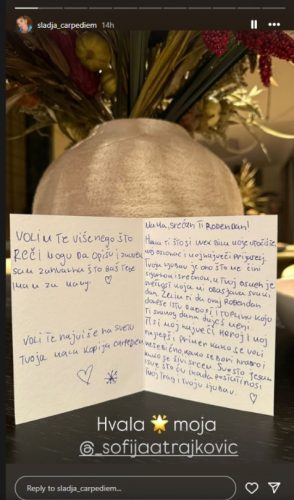 sladja_carpediem 14h
VOLIM TE VIŠE NEGO ŠTO
REČI MOGU DA OPIŠU I ZAUVEK
SAM ZAHVALNA ŠTO BAŠ TEBE
IMAM ZA MAMU.
VOLI TE NAJVIŠE NA SVETU
TVOJA MALA KOPIJA CARPEDIEM
MAMA, SREĆAN TI ROĐENDAN!
HVALA TI ŠTO SI UVEK BILA MOJE UTOČIŠTE,
MOJ OSLONAC I MOJ NAJVEĆI PRIJATELJ.
TVOJA LJUBAV JE ONO ŠTO ME ČINI
SIGURNOM I SREĆNOM, A TVOJ OSMEH JE
SVETLOST KOJA MI OBASJAVA SVAKI
DAN. ŽELIM TI DA OVAJ ROĐENDAN
DONESE ISTU RADOST I TOPLINU KOJU
TI SVAKOG DANA DAJEŠ MENI.
TI SI MOJ NAJVEĆI HEROJ I MOJ
NAJLEPŠI PRIMER KAKO SE VOLI
NESEBIČNO, KAKO SE BORI HRABRO I
KAKO SE ŽIVI SRCEM. SVE ŠTO JESAM
I SVE ŠTO ĆU IKADA POSTATI NOSI
TVOJ TRAG I TVOJU LJUBAV.
Hvala 🌟 moja
@_sofijaatrajkovic
Reply to sladja_carpediem...